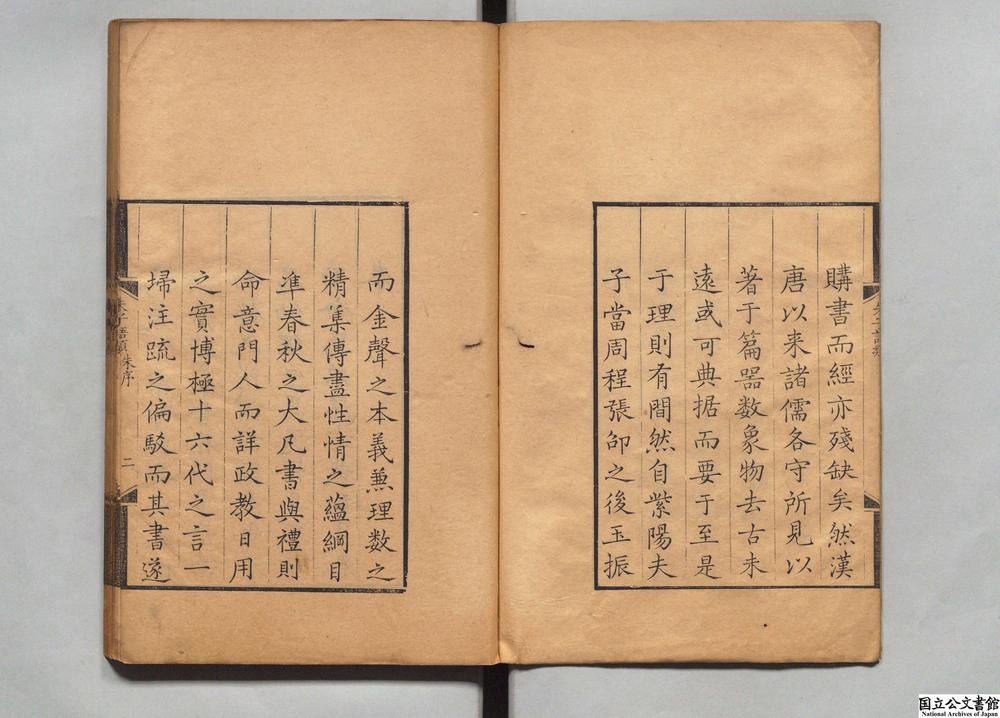 購書而經亦殘缺矣然漢
唐以来諸儒各守所見以
著于篇噐数象物去古未
遠或可典据而要于至是
于理則有間然自紫陽夫
子當周程張邵之後玉振
而金聲之本義兼理数之
精集傳盡性情之蘊綱目
准春秋之大凡書與禮則
命意門人而詳政教日用
之實博極十六代之言一
埽注䟽之偏駁而其書遂
朱序
二
国立公文書館
National Archives of Japan